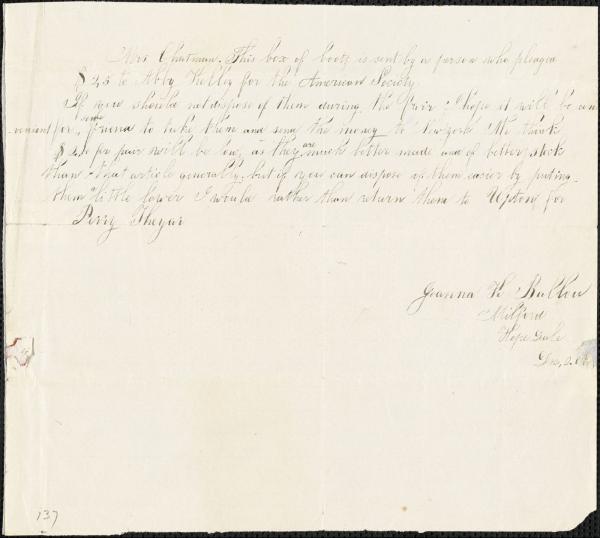 Mrs Chatman. This box of boots is sent by a person who pleaged
$25 to Abby Kelley for the American Society.
If you should not dispose of them during the Fair I hope it will be con
venient for some friend to take them and send the money to New york We think
per pair will be low, as they are much better made and of better stock
than that article generally, but if you can dispose of them easier by puting
them little lower I would rather than return them to Upton for
Perry Thayer
Joanna Ballou
Milford
Hope Dale
Dec,
137